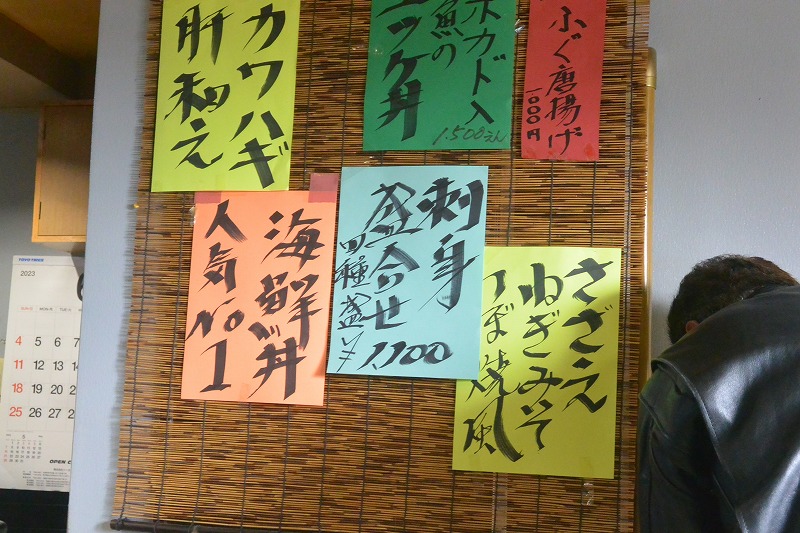 カワハギ
肝和え
ボカド入
魚の
ユッケ丼
1.500えん
ふぐ唐揚げ
1000円
海鮮丼
人気No1
刺身
盛合せ
四種盛¥1,100
さざえ
ねぎみそ
つぼ焼風
2023
4 5 6 7
11 12 13 14
18 19 20 21
25 26 27 28